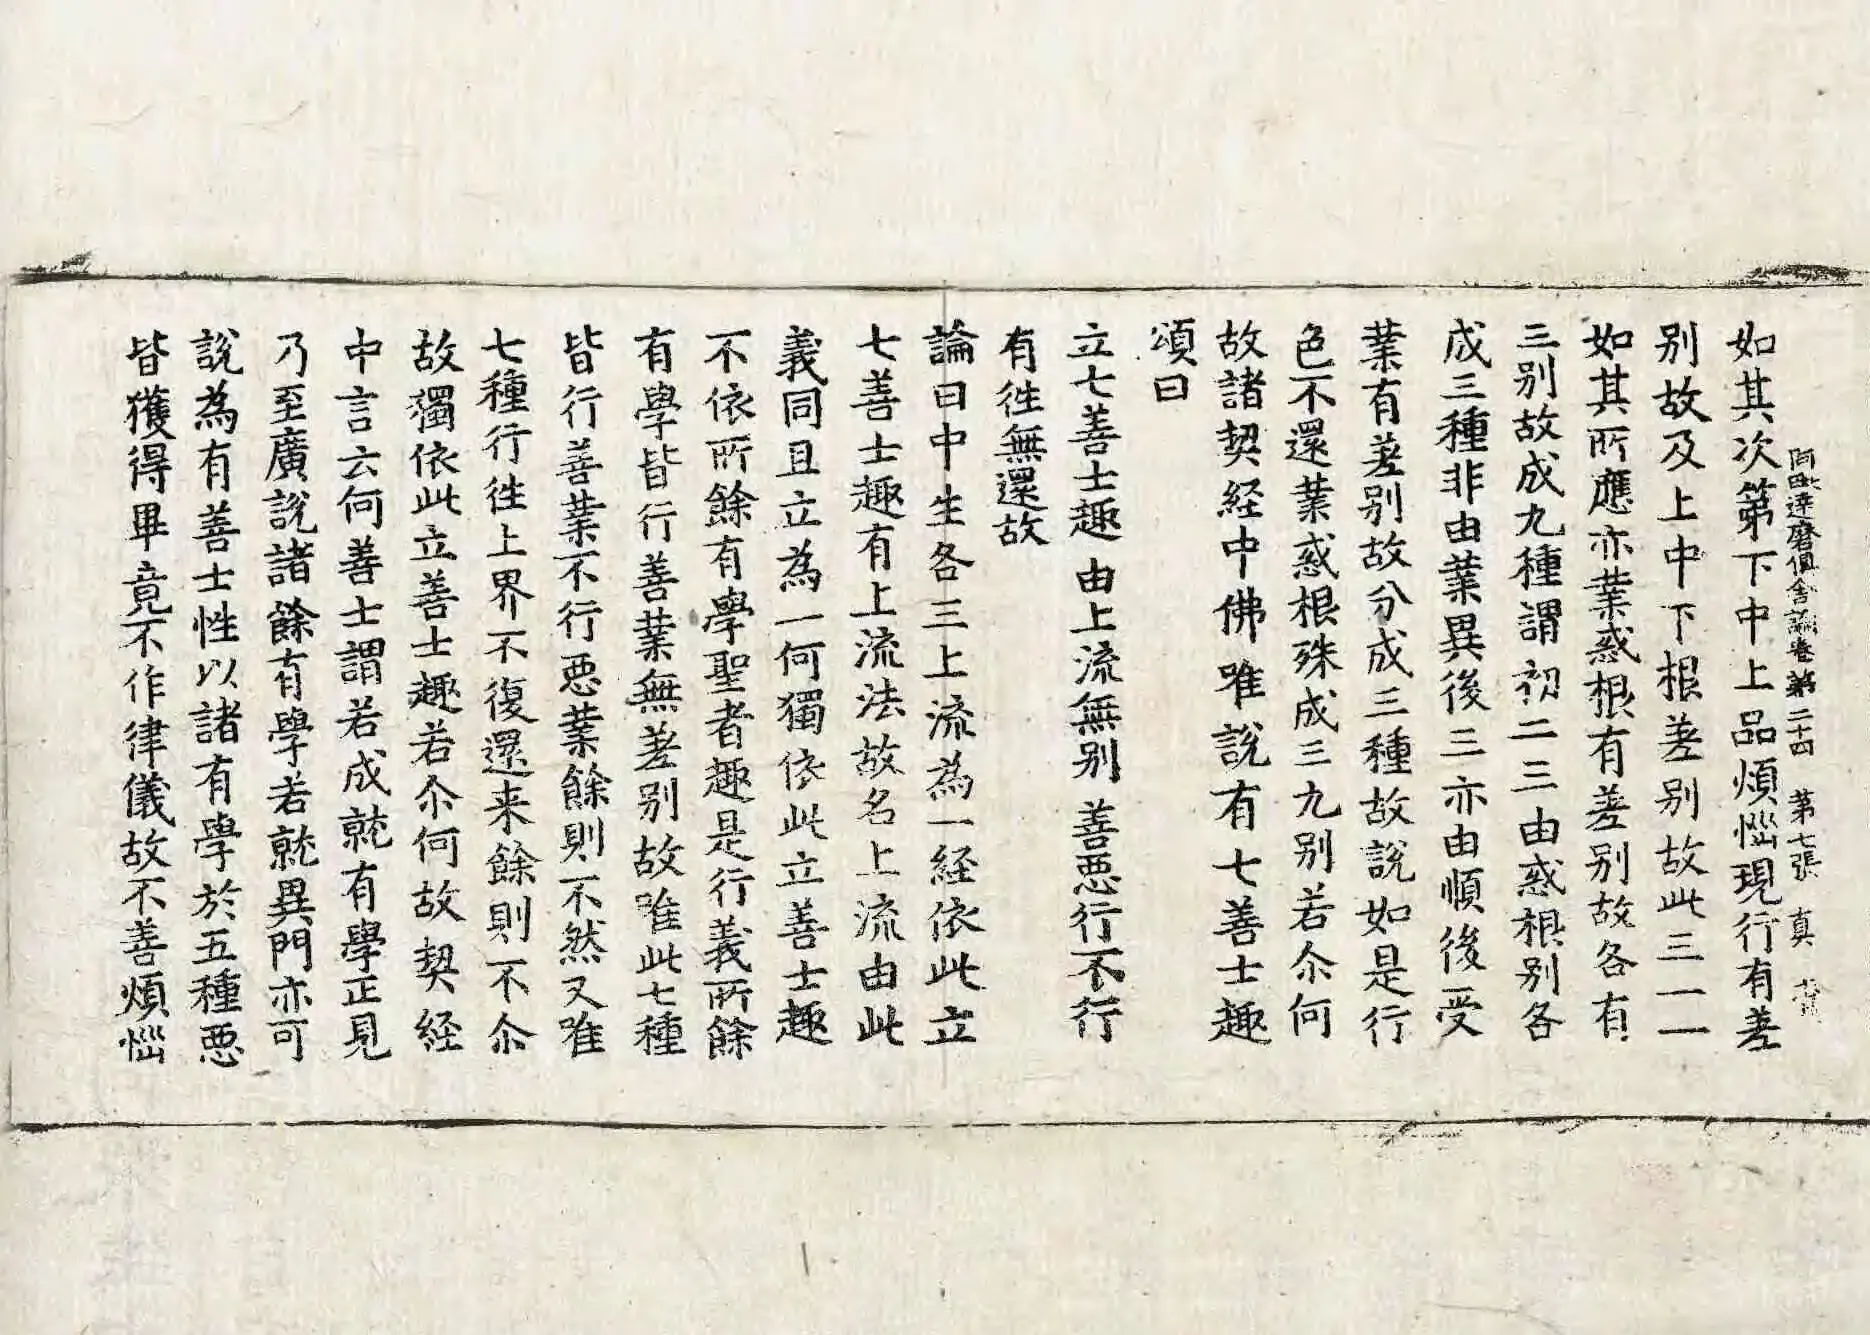 阿毗達磨俱舍論卷第二十四 第七張 真
如其次第下中上品煩惱現行有差
別故及上中下根差別故此三一一
如其所應亦業惑根有差別故各有
三別故成九種謂初二三由惑根別各
成三種非由業異後三亦由順後受
業有差別故分成三種故說如是行
色不還業惑根殊成三九別若尒何
故諸契経中佛唯說有七善士趣
頌曰
立七善士趣 由上流無別 善惡行不行
有徃無還故
論曰中生各三上流為一経依此立
七善士趣有上流法故名上流由此
義同且立為一何獨依此立善士趣
不依所餘有學聖者趣是行義所餘
有學皆行善業無差別故唯此七種
皆行善業不行惡業餘則不然又唯
七種行徃上界不復還来餘則不尒
故獨依此立善士趣若尒何故契経
中言云何善士謂若成就有學正見
乃至廣說諸餘有學若就異門亦可
說為有善士性以諸有學於五種惡
皆獲得畢竟不作律儀故不善煩惱